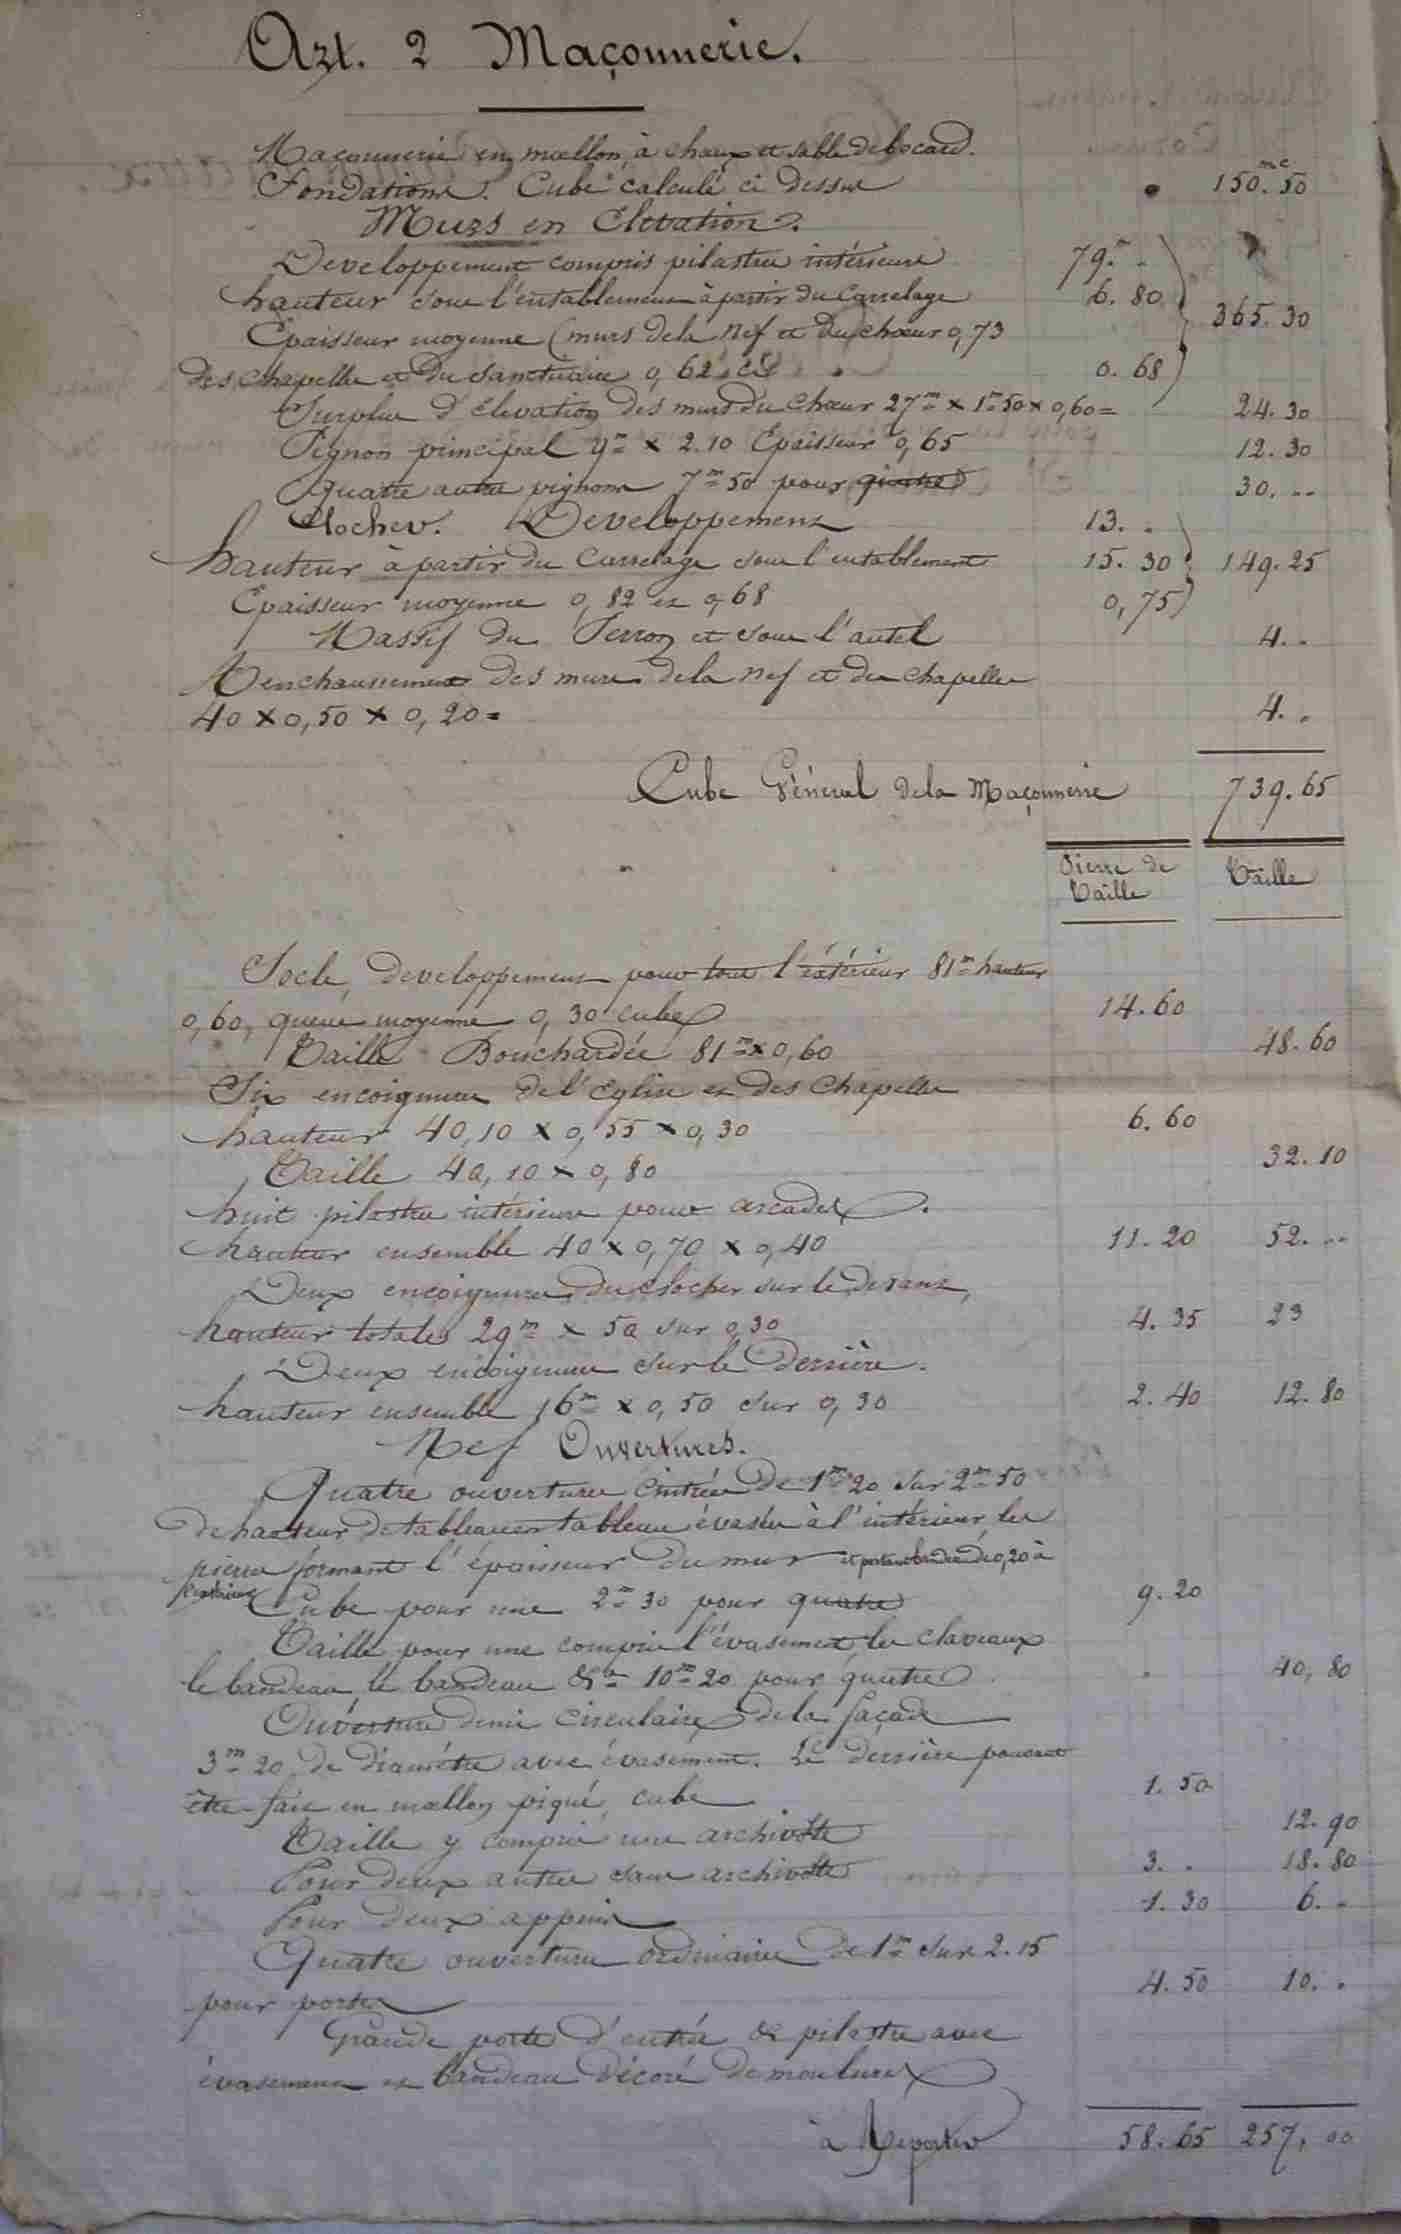 Art. 2 Maçonnerie.
Maçonnerie en moellon, à chaux et sable de bocard.
Fondations. Cube calculé ci dessus 150.mc50
Murs en Elevation.
Developpement compris pilastres intérieurs 79.m .
hauteur sous l'entablement à partir du Carrelage 6.80 365.30
Epaisseur moyenne (murs de la Nef et du chœur 0,73
des chapelles et du sanctuaire 0,62 ci 0.68
Surplus d'élevation des murs du Chœur 27m × 1m50 × 0,60 = 24.30
Pignon principal 9m × 2.10 Epaisseur 0,65 12.30
Quatre autres pignons 7m50 pour quatre 30. --
Clocher. Developpement 13. .
hauteur à partir du Carrelage sous l'entablement 15.30 149.25
Epaisseur moyenne 0,82 et 0,68 0,75
Massif du Perron et sous l'autel 4. .
Renchaussement des murs de la Nef et des chapelles
40 × 0,50 × 0,20 = 4. .
Cube Général de la Maçonnerie 739.65
Pierre de Taille Taille
Socle, developpement pour tout l'éxtérieur 81m hauteur
0,60, queue moyenne 0,30 cube 14.60
Taille Bouchardée 81m × 0,60 48.60
Six encoignures de l'Eglise et des Chapelles
hauteur 40,10 × 0,55 × 0,30 6.60
Taille 40,10 × 0,80 32.10
huit pilastres intérieurs pour arcades.
hauteur ensemble 40 × 0,70 × 0,40 11.20 52. --
Deux encoignures du clocher sur le devant,
hauteur totale 29m × 50 sur 0,30 4.35 23
Deux encoignures sur le derrière.
hauteur ensemble 16m × 0,50 sur 0,30 2.40 12.80
Nef Ouvertures.
Quatre ouvertures cintrées de 1m20 sur 2m50
de hauteur de tableau en tableau évasées à l'intérieur les
pierres formant l'épaisseur du mur et portant bandeau de 0,20 à
Cube pour une 2m30 pour quatre 9.20
Taille pour une compris l'évasement, les claveaux
le bandeau, le bandeau &a 10m20 pour quatre 40,80
Ouverture demi circulaire de la façade
3m20 de diamétre avec évasement. Le derrière pouvant
être fait en moellon piqué, cube 1.50
Taille y compris une archivolte 12.90
Pour deux autres sans archivolte 3. . 18.80
Pour deux appuis 1.30 6. .
Quatre ouvertures ordinaires de 1m sur 2.15
pour portes 4.50 10. .
Grande porte d'entrée & pilastres avec
évasement et bandeau décoré de moulures
à Reporter 58.65 257,00